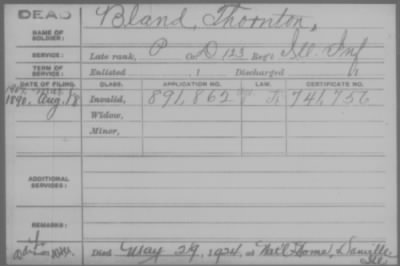 DEAD
Bland, Thornton,
NAME OF
SOLDIER:
SERVICE:
Late rank, P Co. D 123 Reg't Ill Inf
TERM OF
SERVICE:
Enlisted , 1 Discharged , 1
DATE OF FILING. CLASS. APPLICATION NO. LAW. CERTIFICATE NO.
1890. Aug. 18 Invalid, 891,862 741,756
Widow,
Minor,
ADDITIONAL
SERVICES:
REMARKS:
Died May 29, 1924, at Nat'l Home, Danville
Ill